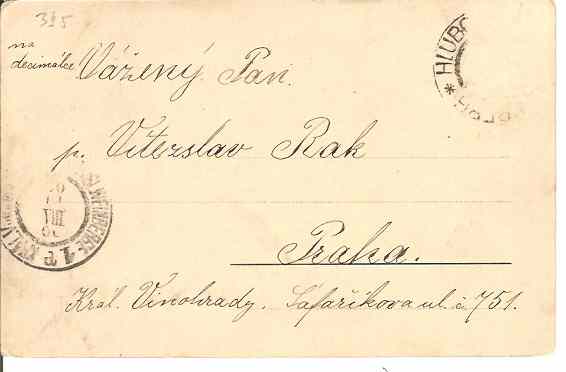 315
na
decimálce
Vážený Pan.
p. Vítezslav Rak
Praha.
Král. Vinohrady. Šafaříkova ul. č 751.
* HLUBO